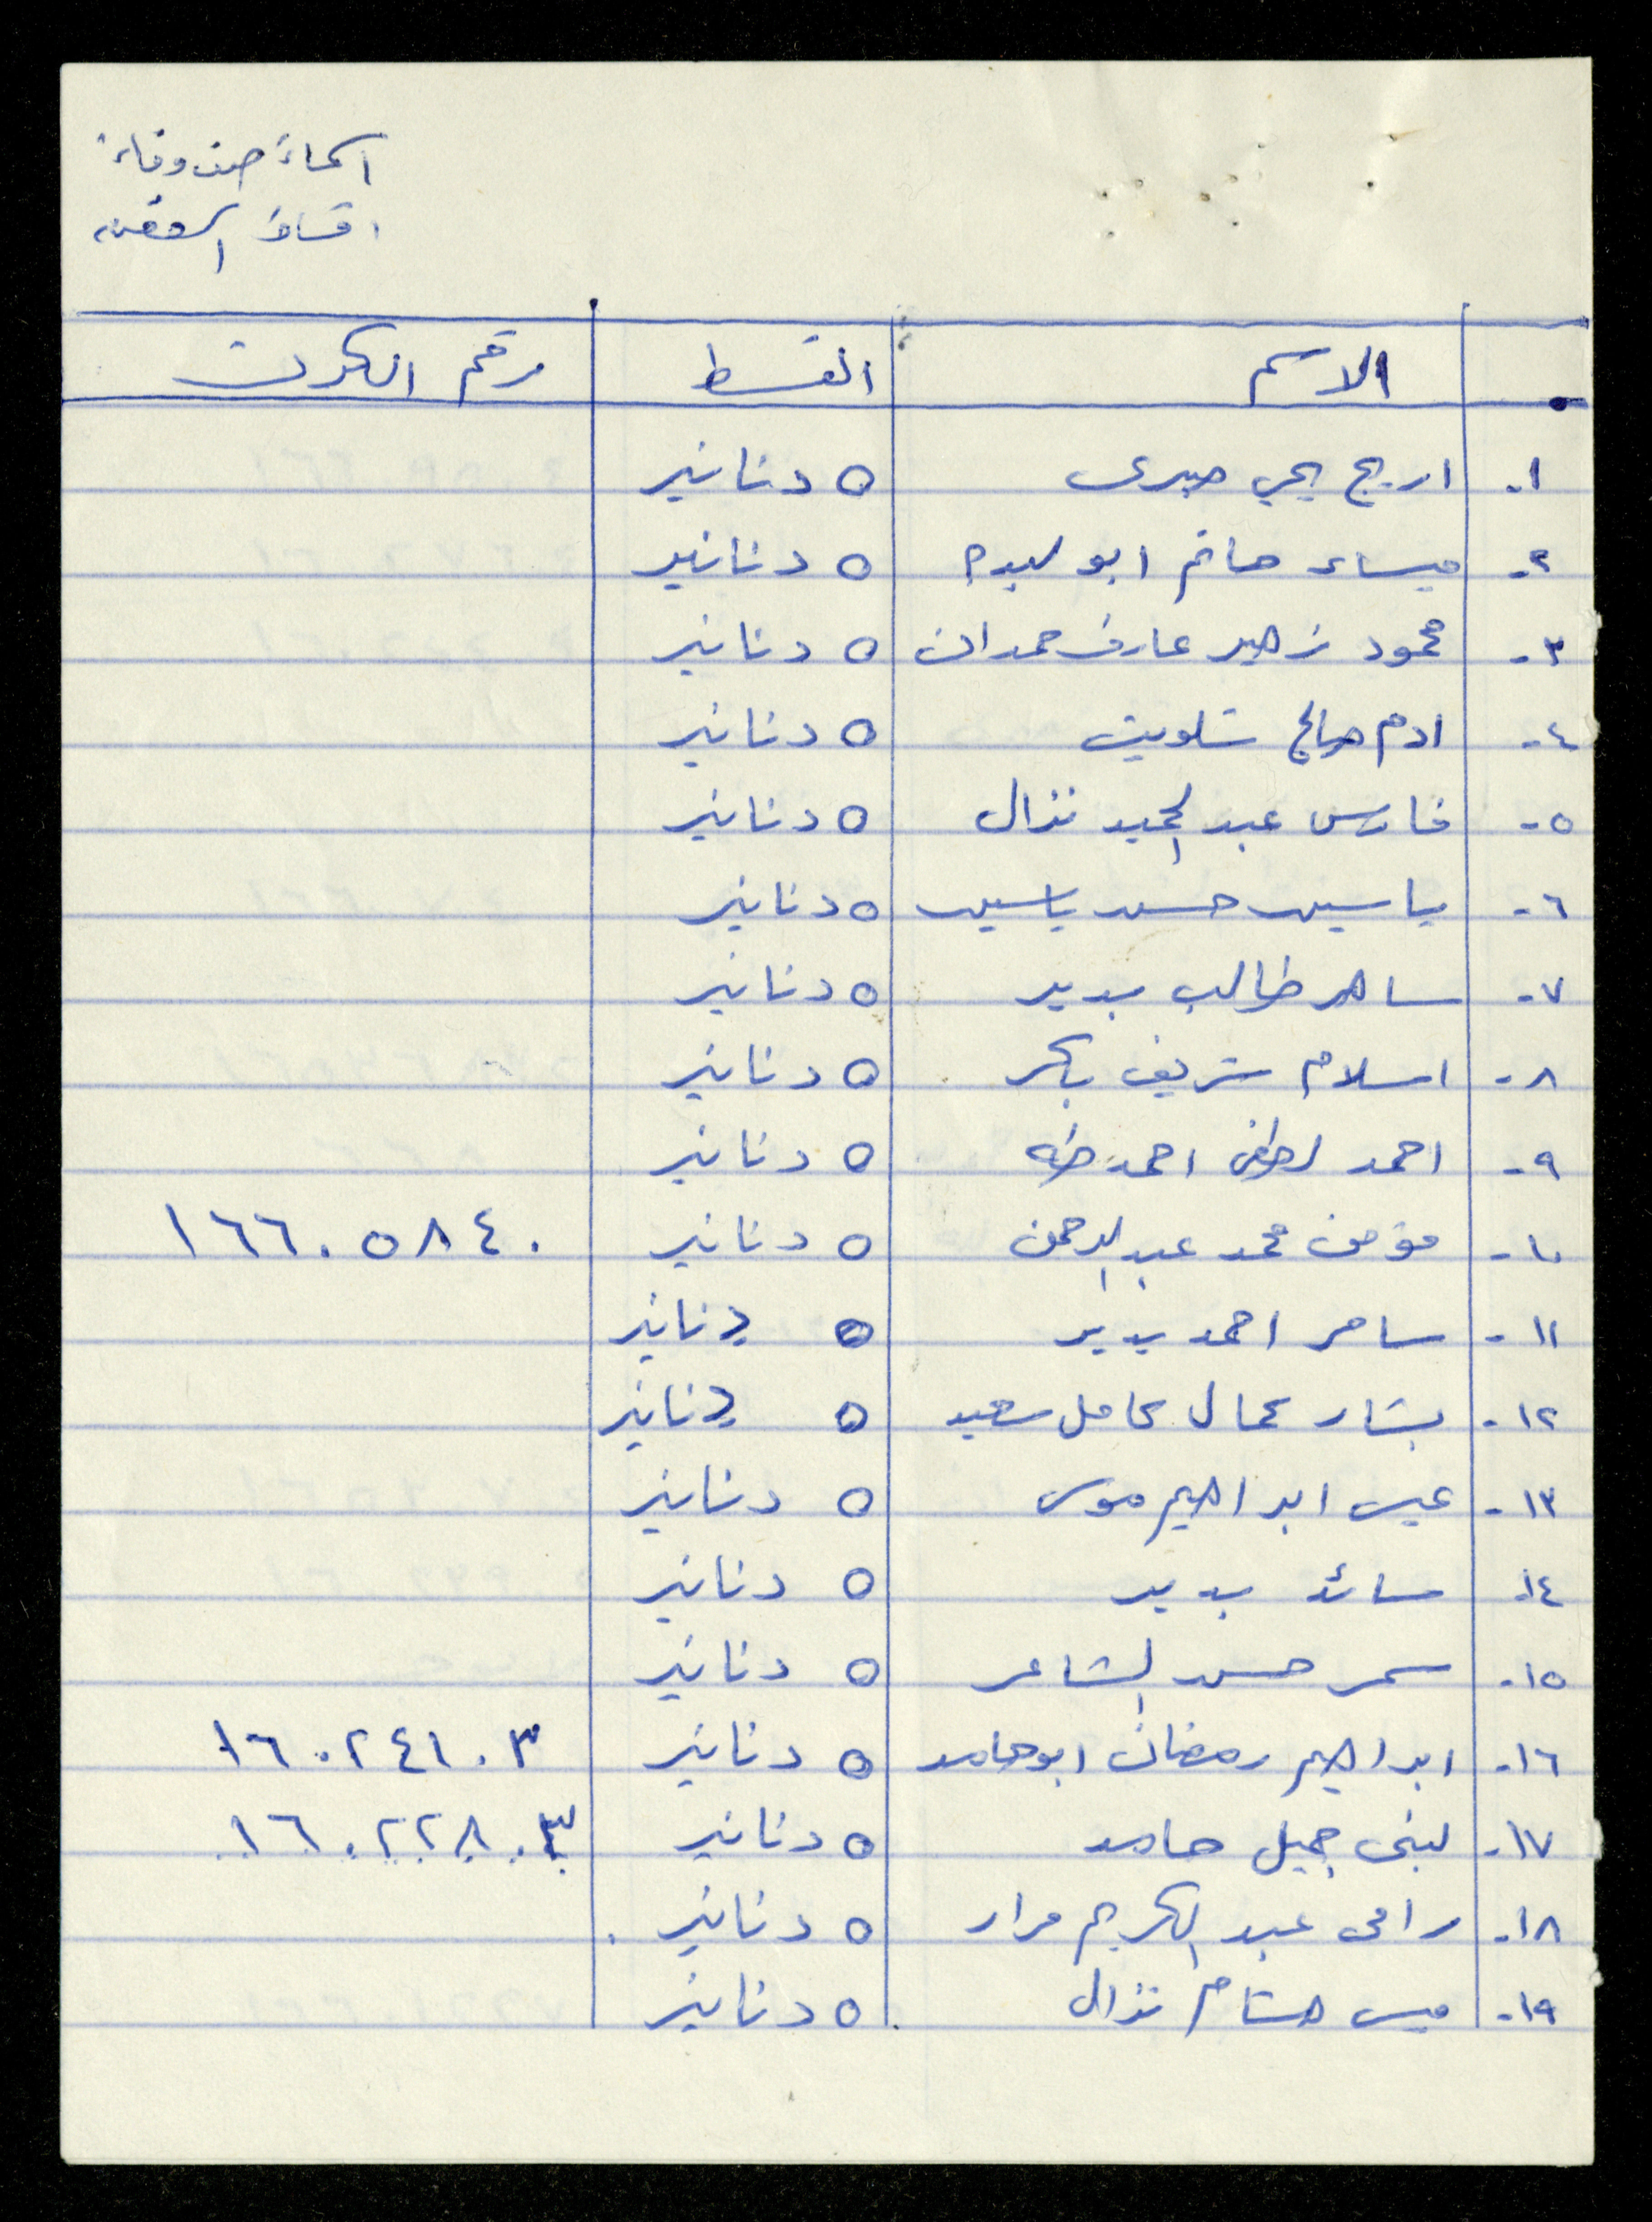 اسماء صف وفاء
اقساط
الاسم القسط رقم الكرت
١- اريج يحي صبري ٥ دنانير
٢- ميساء حاتم ابو لبده ٥ دنانير
٣- محمود زهير عارف حمدان ٥ دنانير
٤- ادم صالح شلويت ٥ دنانير
٥- فارس عبد الحميد نزال ٥ دنانير
٦- ياسين حسن ياسين ٥ دنانير
٧- ساهر طالب بدير ٥ دنانير
٨- اسلام شريف بكر ٥ دنانير
٩- احمد لطفي احمد طه ٥ دنانير
١٠- مؤمن محمد عبد الرحمن ٥ دنانير ١٦٦٠٥٨٤٠
١١- سامر احمد بدير ٥ دنانير
١٢- بشار كمال كامل سعيد ٥ دنانير
١٣- عيسى ابراهيم موسى ٥ دنانير
١٤- سائد بدير ٥ دنانير
١٥- سمر حسن الشاعر ٥ دنانير
١٦- ابراهيم رمضان ابو حامد ٥ دنانير ١٦٠٢٤١٠٣
١٧- لبنى جميل حامد ٥ دنانير ١٦٠٢٢٨٠٣
١٨- رامي عبد الكريم مرار ٥ دنانير
١٩- ميس هشام نزال ٥ دنانير